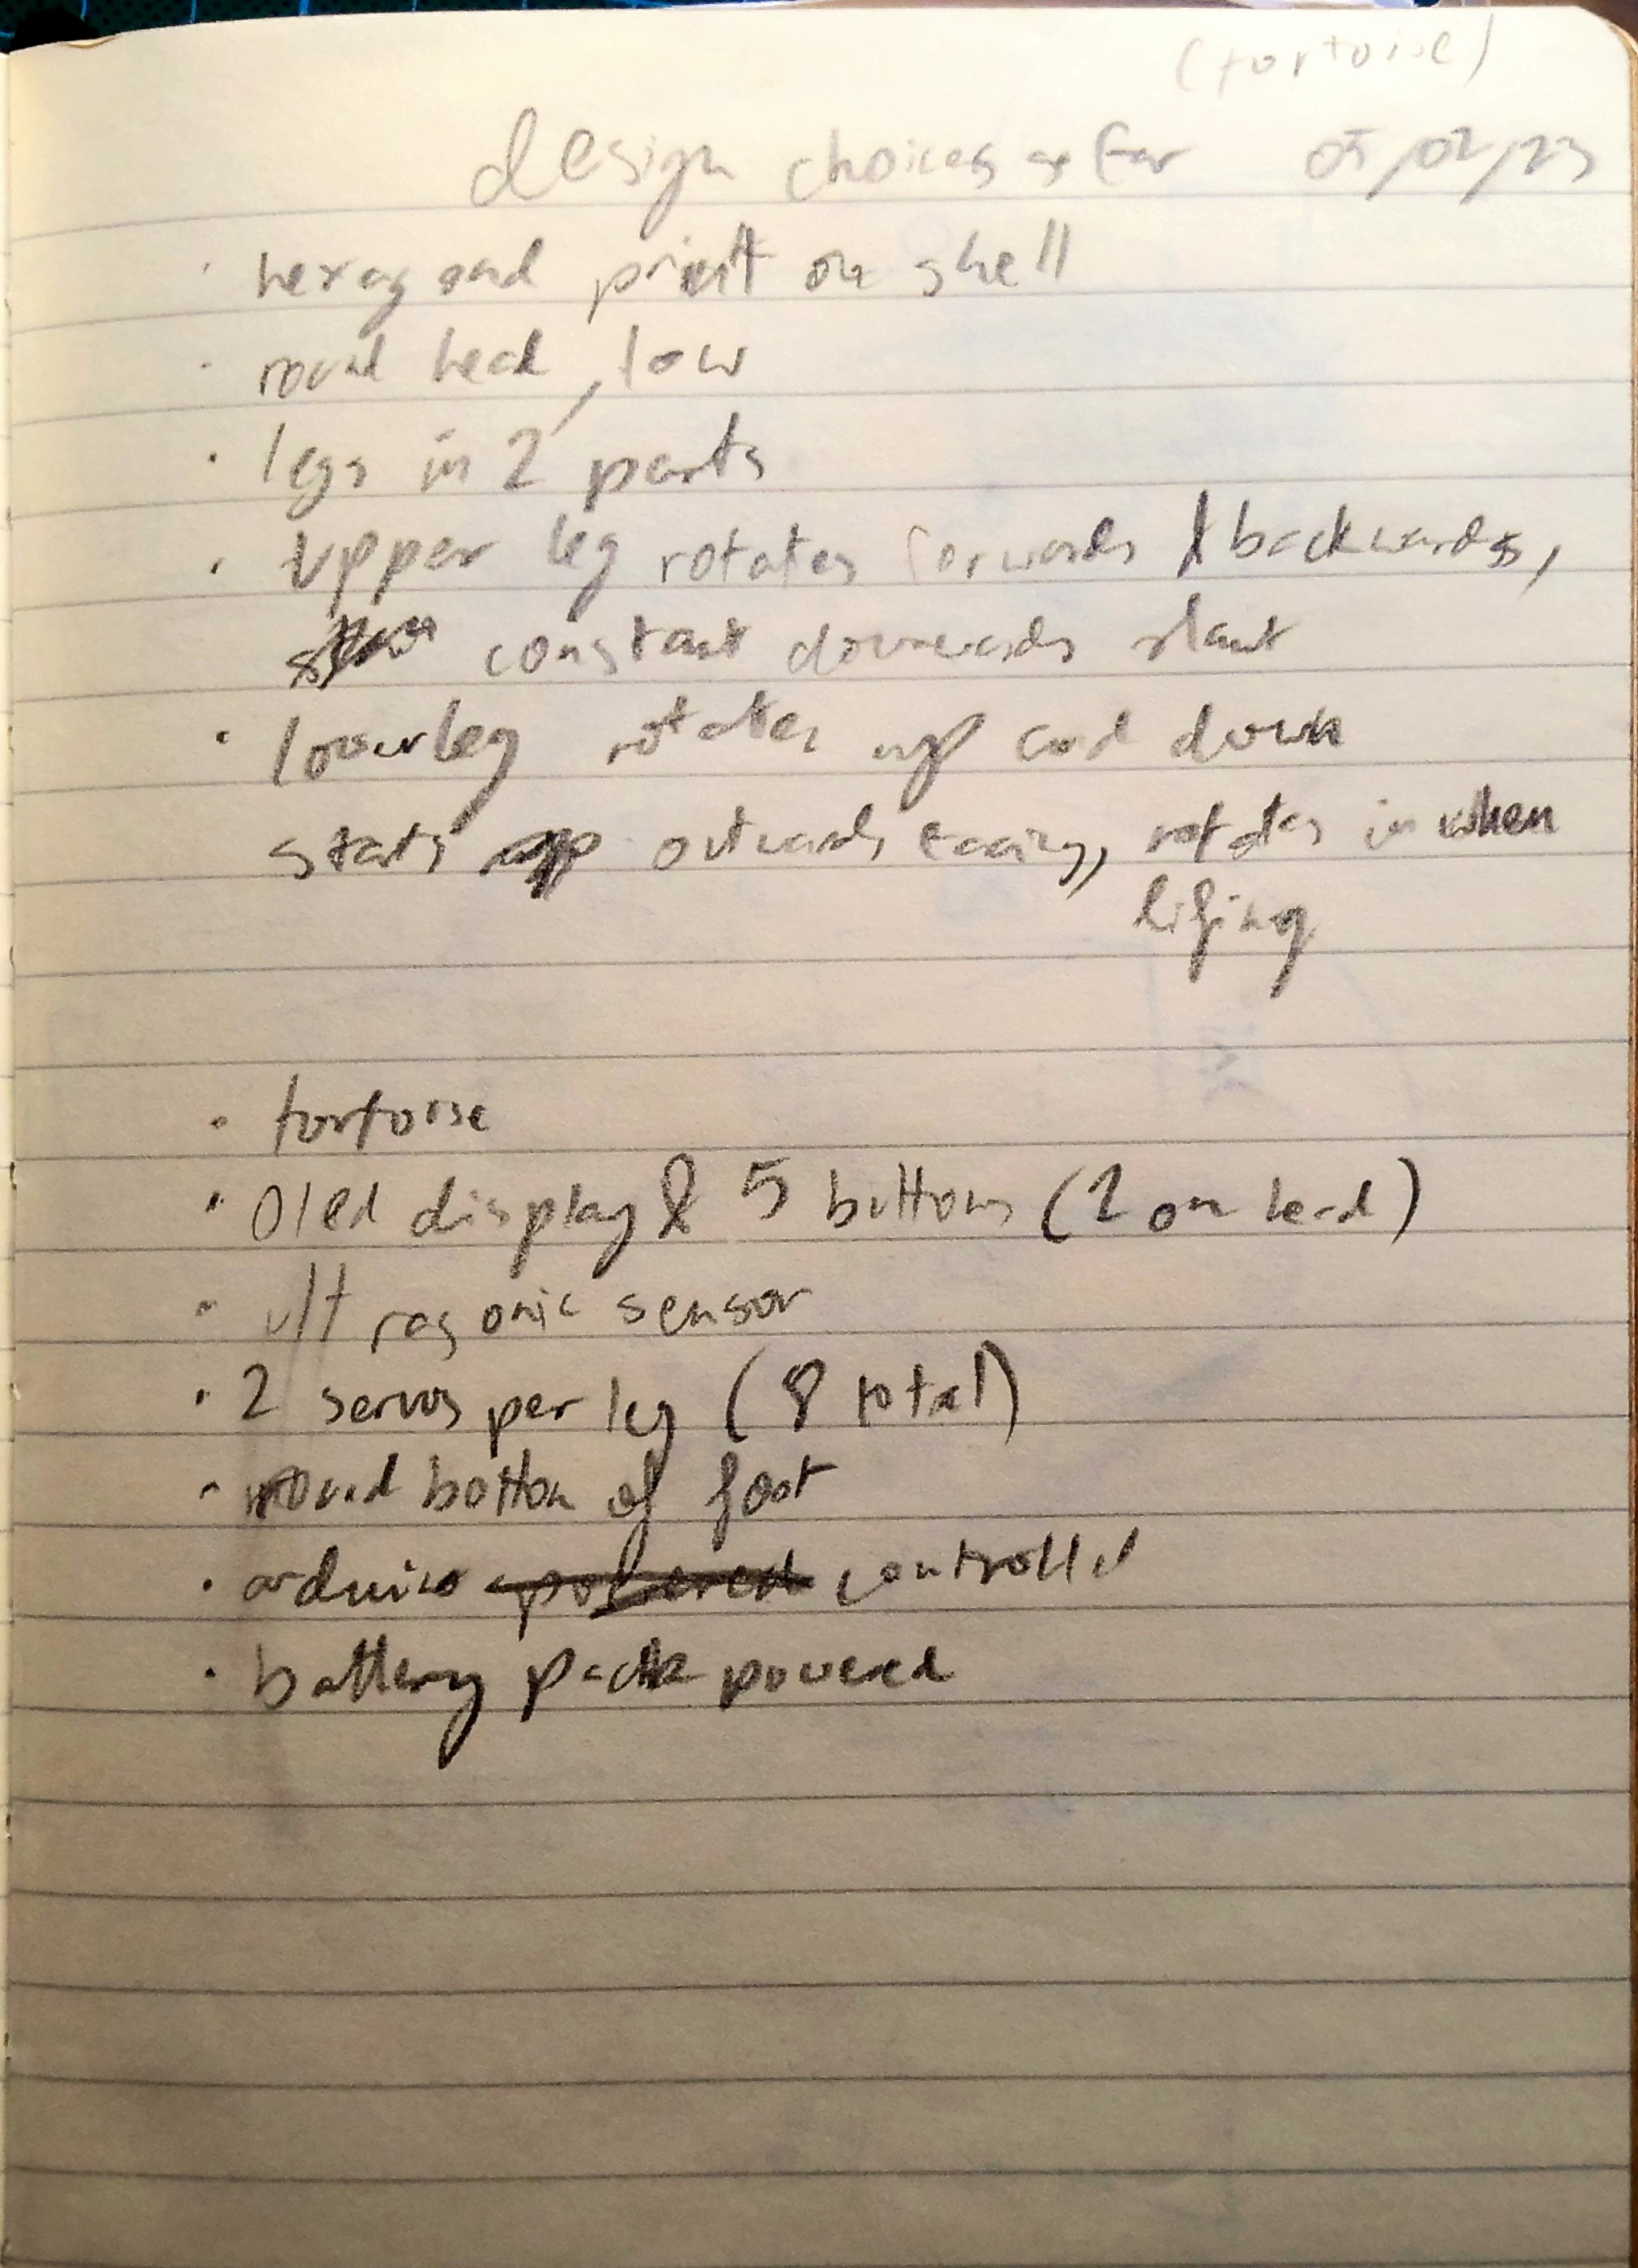 (tortoise)
design choices so far 05/02/23
· hexagonal print on shell
· round head, low
· legs in 2 parts
· upper leg rotates forwards & backwards,
constant downwards slant
· lower leg rotates up and down
starts outwards facing, rotates in when
lifing
· tortoise
· Oled display & 5 buttons (1 on head)
· ultrasonic sensor
· 2 servos per leg (8 total)
· round bottom of foot
· arduino powered controlled
· battery pack powered